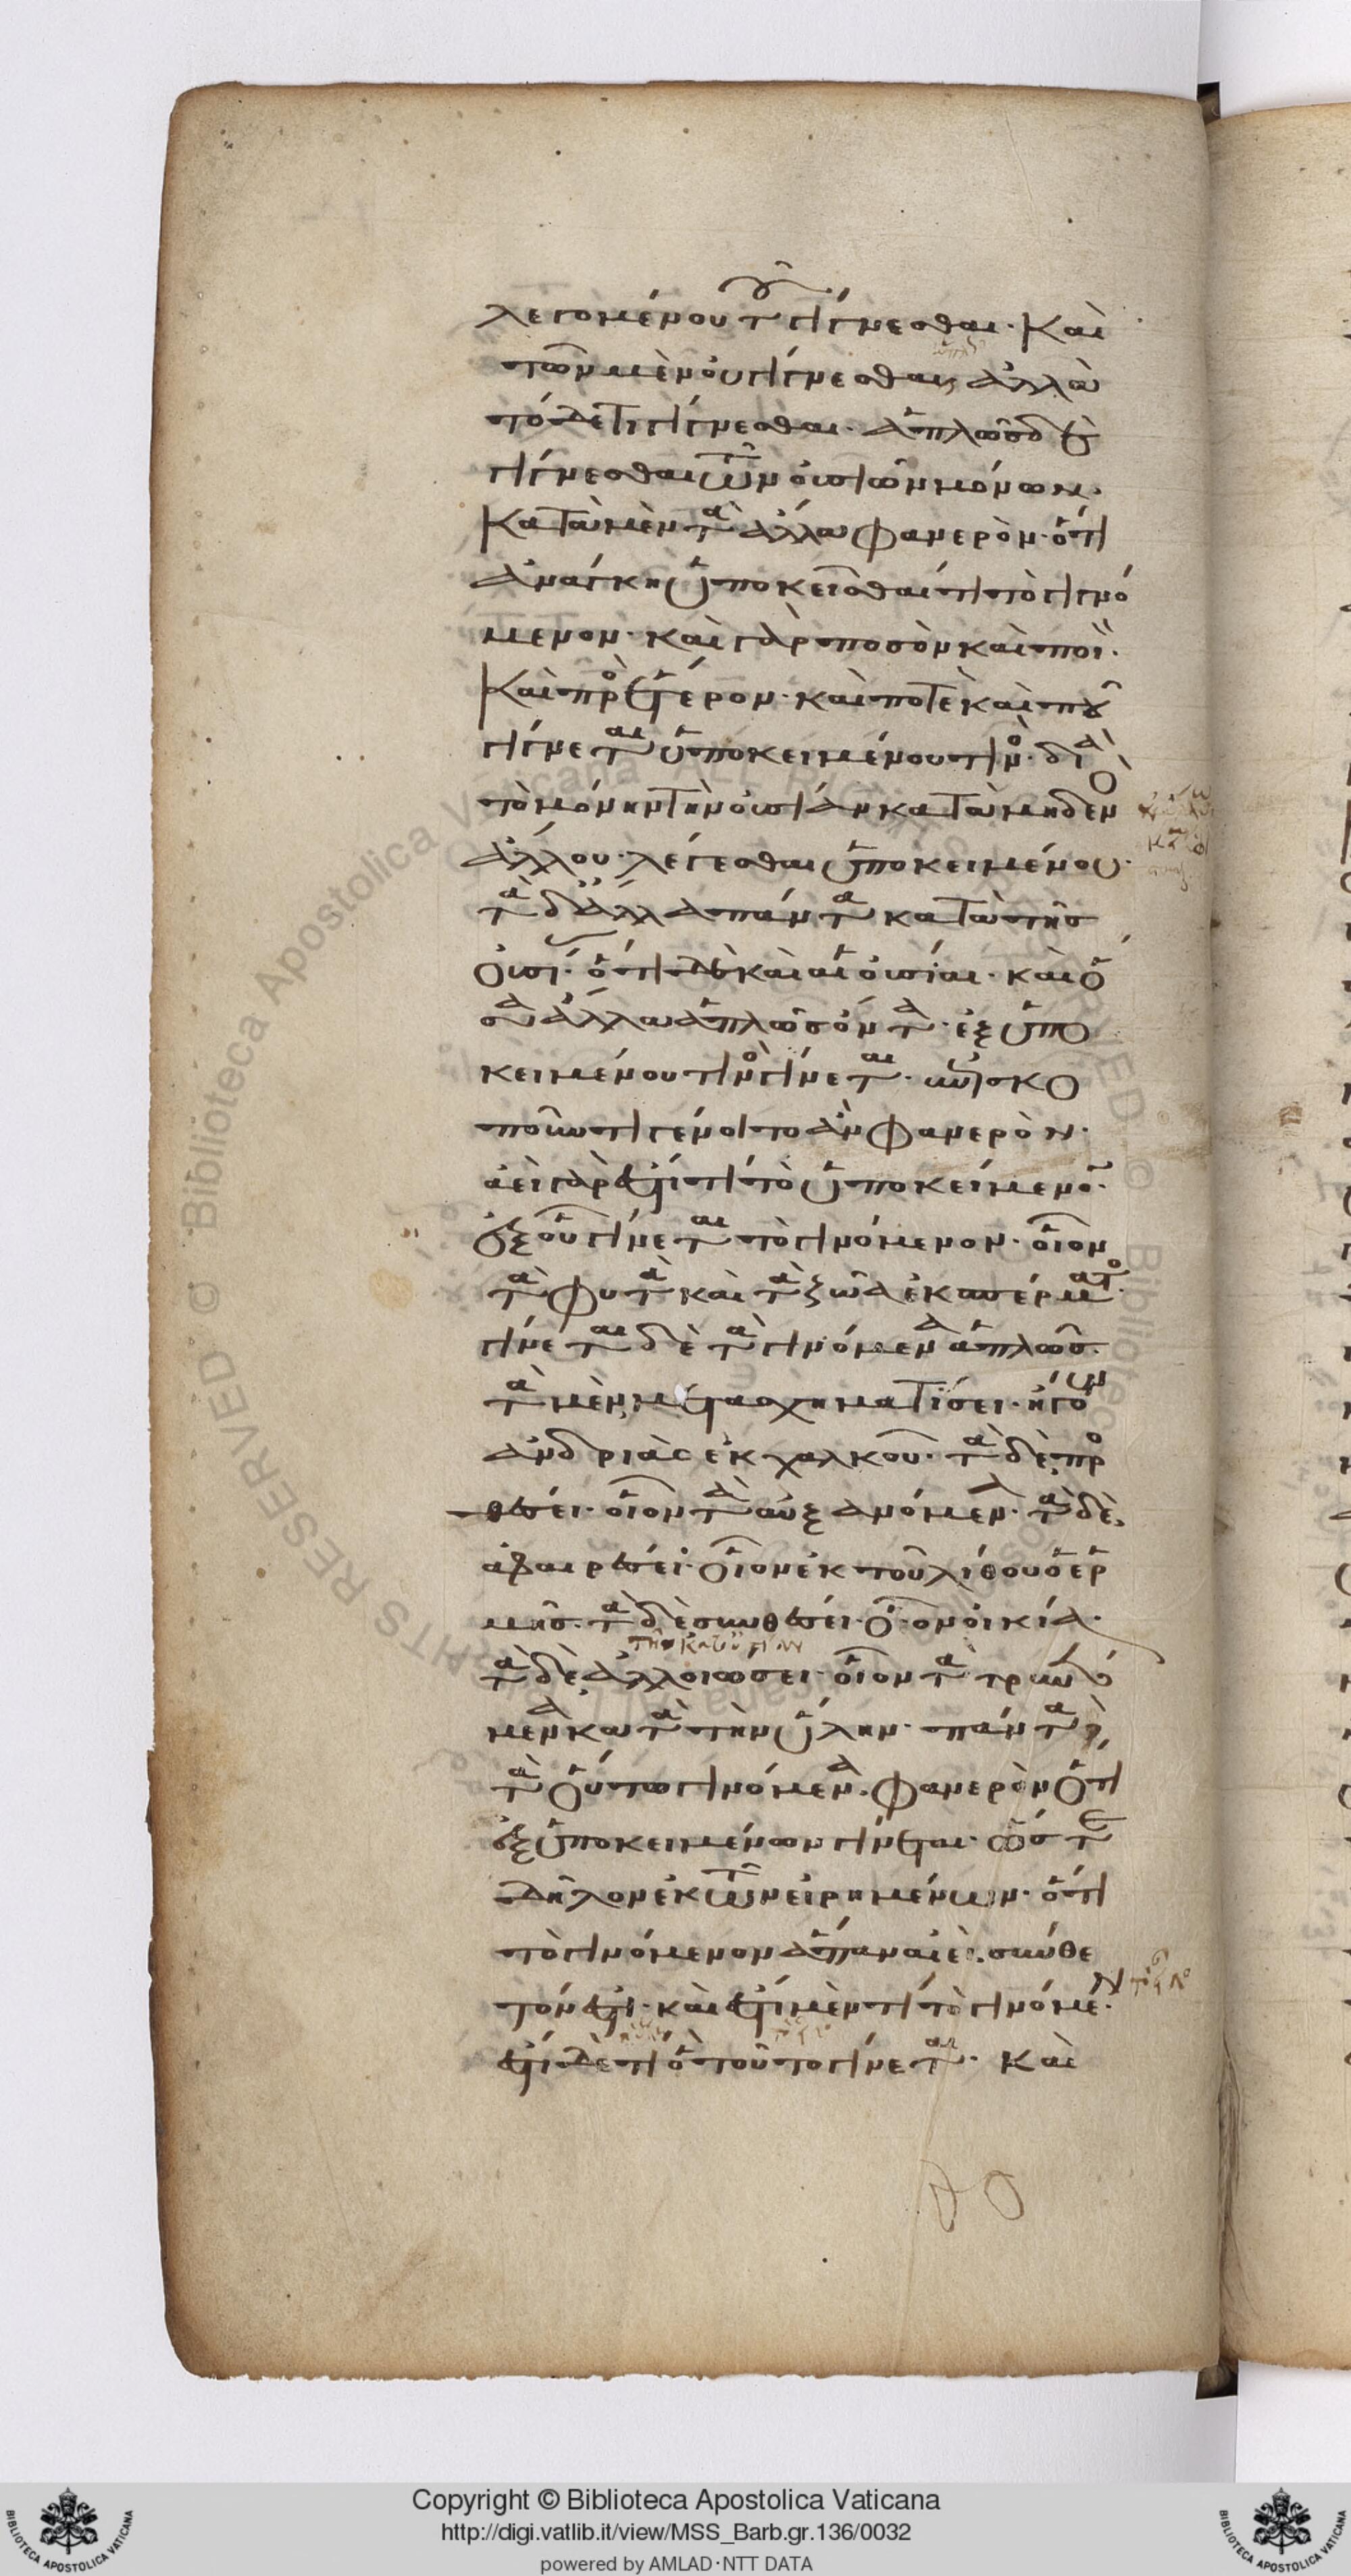 λεγομένου τοῦ γίγνεσθαι· Καὶ
τῶν μὲν οὐ γίγνεσθαι, ἀλλὰ
τόδε τι γίγνεσθαι· ἁπλῶς δὲ
γίγνεσθαι τῶν οὐσιῶν μόνων.
Κατὰ μὲν τὰ ἄλλα φανερὸν· ὅτι
ἀνάγκη ὑποκεῖσθαί τι τὸ γιγνό
μενον· καὶ γὰρ ποσὸν καὶ ποιὸν.
Καὶ πρὸς ἕτερον· καὶ ποτὲ καὶ ποῦ
γίγνεται ὑποκειμένου τινὸς· διὰ
τὸ μόνην τὴν οὐσίαν κατὰ μηδενὸ
ἄλλου· λέγεσθαι ὑποκειμένου.
τὰ δ' ἄλλα πάντα κατὰ τῆς
οὐσίας· ὅτι δὲ καὶ αἱ οὐσίαι· καὶ ὅ
σα ἄλλα ἁπλῶς ὄντα· ἐξ ὑπο
κειμένου τινὸς γίνεται· ἐπισκο
ποῦντι γένοιτο ἂν φανερὸν.
ἀεὶ γὰρ ἐστί τι τὸ ὑποκείμενον·
ἐξ οὗ γίνεται τὸ γινόμενον· οἷον
τὰ φυτὰ καὶ τὰ ζῶα ἐκ σπέρματος.
γίνεται δὲ τὰ γινόμενα ἁπλῶς.
τὰ μὲν μετασχηματίσει· ἡγοῦν
ἀνδριὰς ἐκ χαλκοῦ· τὰ δὲ προσ
θέσει· οἷον τὰ αὐξανόμενα· τὰ δὲ
ἀφαιρέσει· οἷον ἐκ τοῦ λίθου ὁ ἑρ
μῆς· τὰ δὲ συνθέσει· οἷον οἰκία·
τὰ δὲ ἀλλοιώσει· οἷον τὰ τρεπό
μενα κατὰ τὴν ὕλην· πάντα δὲ
τὰ οὕτω γινόμενα. φανερὸν ὅτι
ἐξ ὑποκειμένων γίνεται· ὥστε
δῆλον ἐκ τῶν εἰρημένων· ὅτι
τὸ γινόμενον ἅπαν ἀεὶ συνθε
τόν ἐστι· καὶ ἔστι μέν τι τὸ γινόμενον
ἔστι δέ τι ὃ τοῦτο γίνεται· Καὶ
Copyright © Biblioteca Apostolica Vaticana
http://digi.vatlib.it/view/MSS_Barb.gr.136/0032
powered by AMLAD·NTT DATA